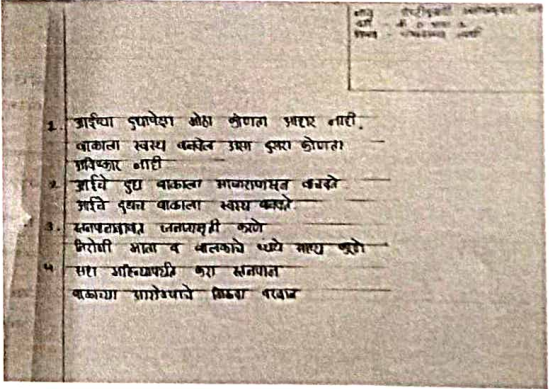 1. आईच्या दुधापेक्षा मोठा कोणता आहार नाही.
बाळाला स्वस्थ बनवेल असा दुसरा कोणता
अविष्कार नाही
2. आईचे दुध बाळाला आजारापासून वाचवते
आईचे दुधच बाळाला स्वस्थ बनवते.
3. स्तनपानाबाबत जनजागृती करणे
निरोगी माता व बालकाचे ध्येये साध्य करणे
4. सहा महिन्यापर्यंत करा स्तनपान
बाळाच्या आरोग्याचे मिळवा वरदान